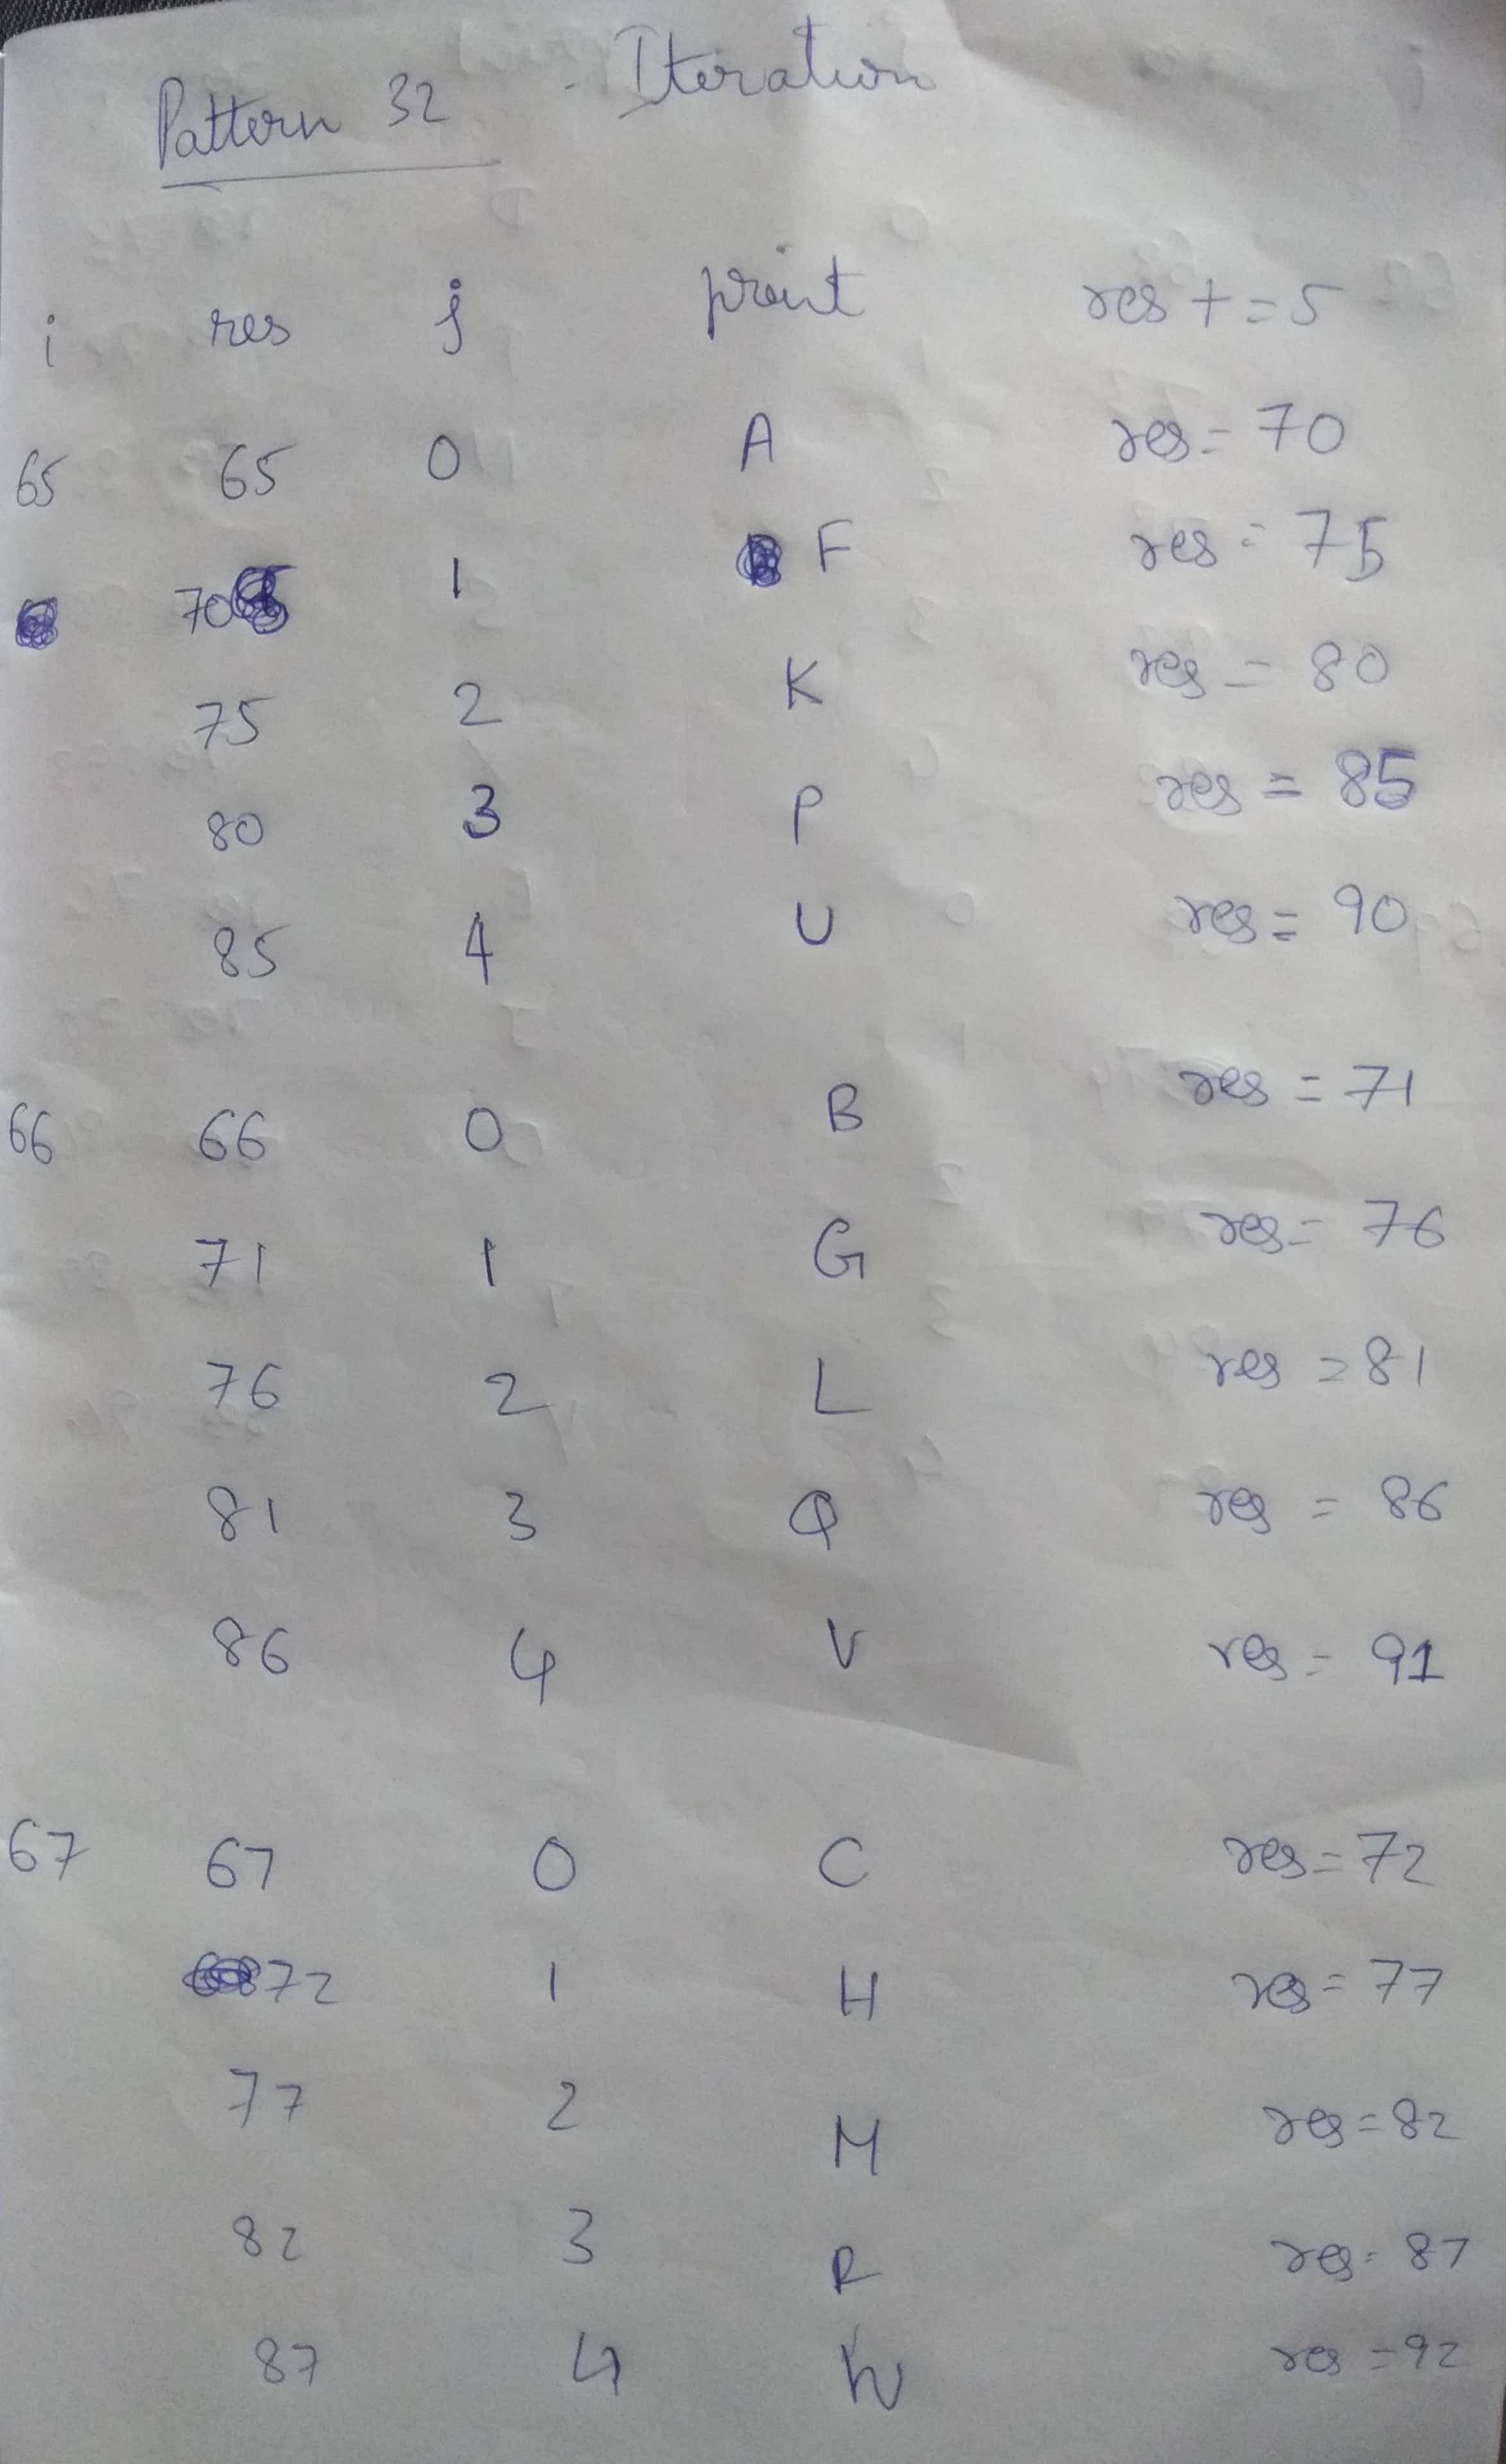 Pattern 32 - Iteration
i res j print res += 5
65 65 0 A res = 70
70 1 F res = 75
75 2 K res = 80
80 3 P res = 85
85 4 U res = 90
66 66 0 B res = 71
71 1 G res = 76
76 2 L res = 81
81 3 Q res = 86
86 4 V res = 91
67 67 0 C res = 72
72 1 H res = 77
77 2 M res = 82
82 3 R res = 87
87 4 W res = 92